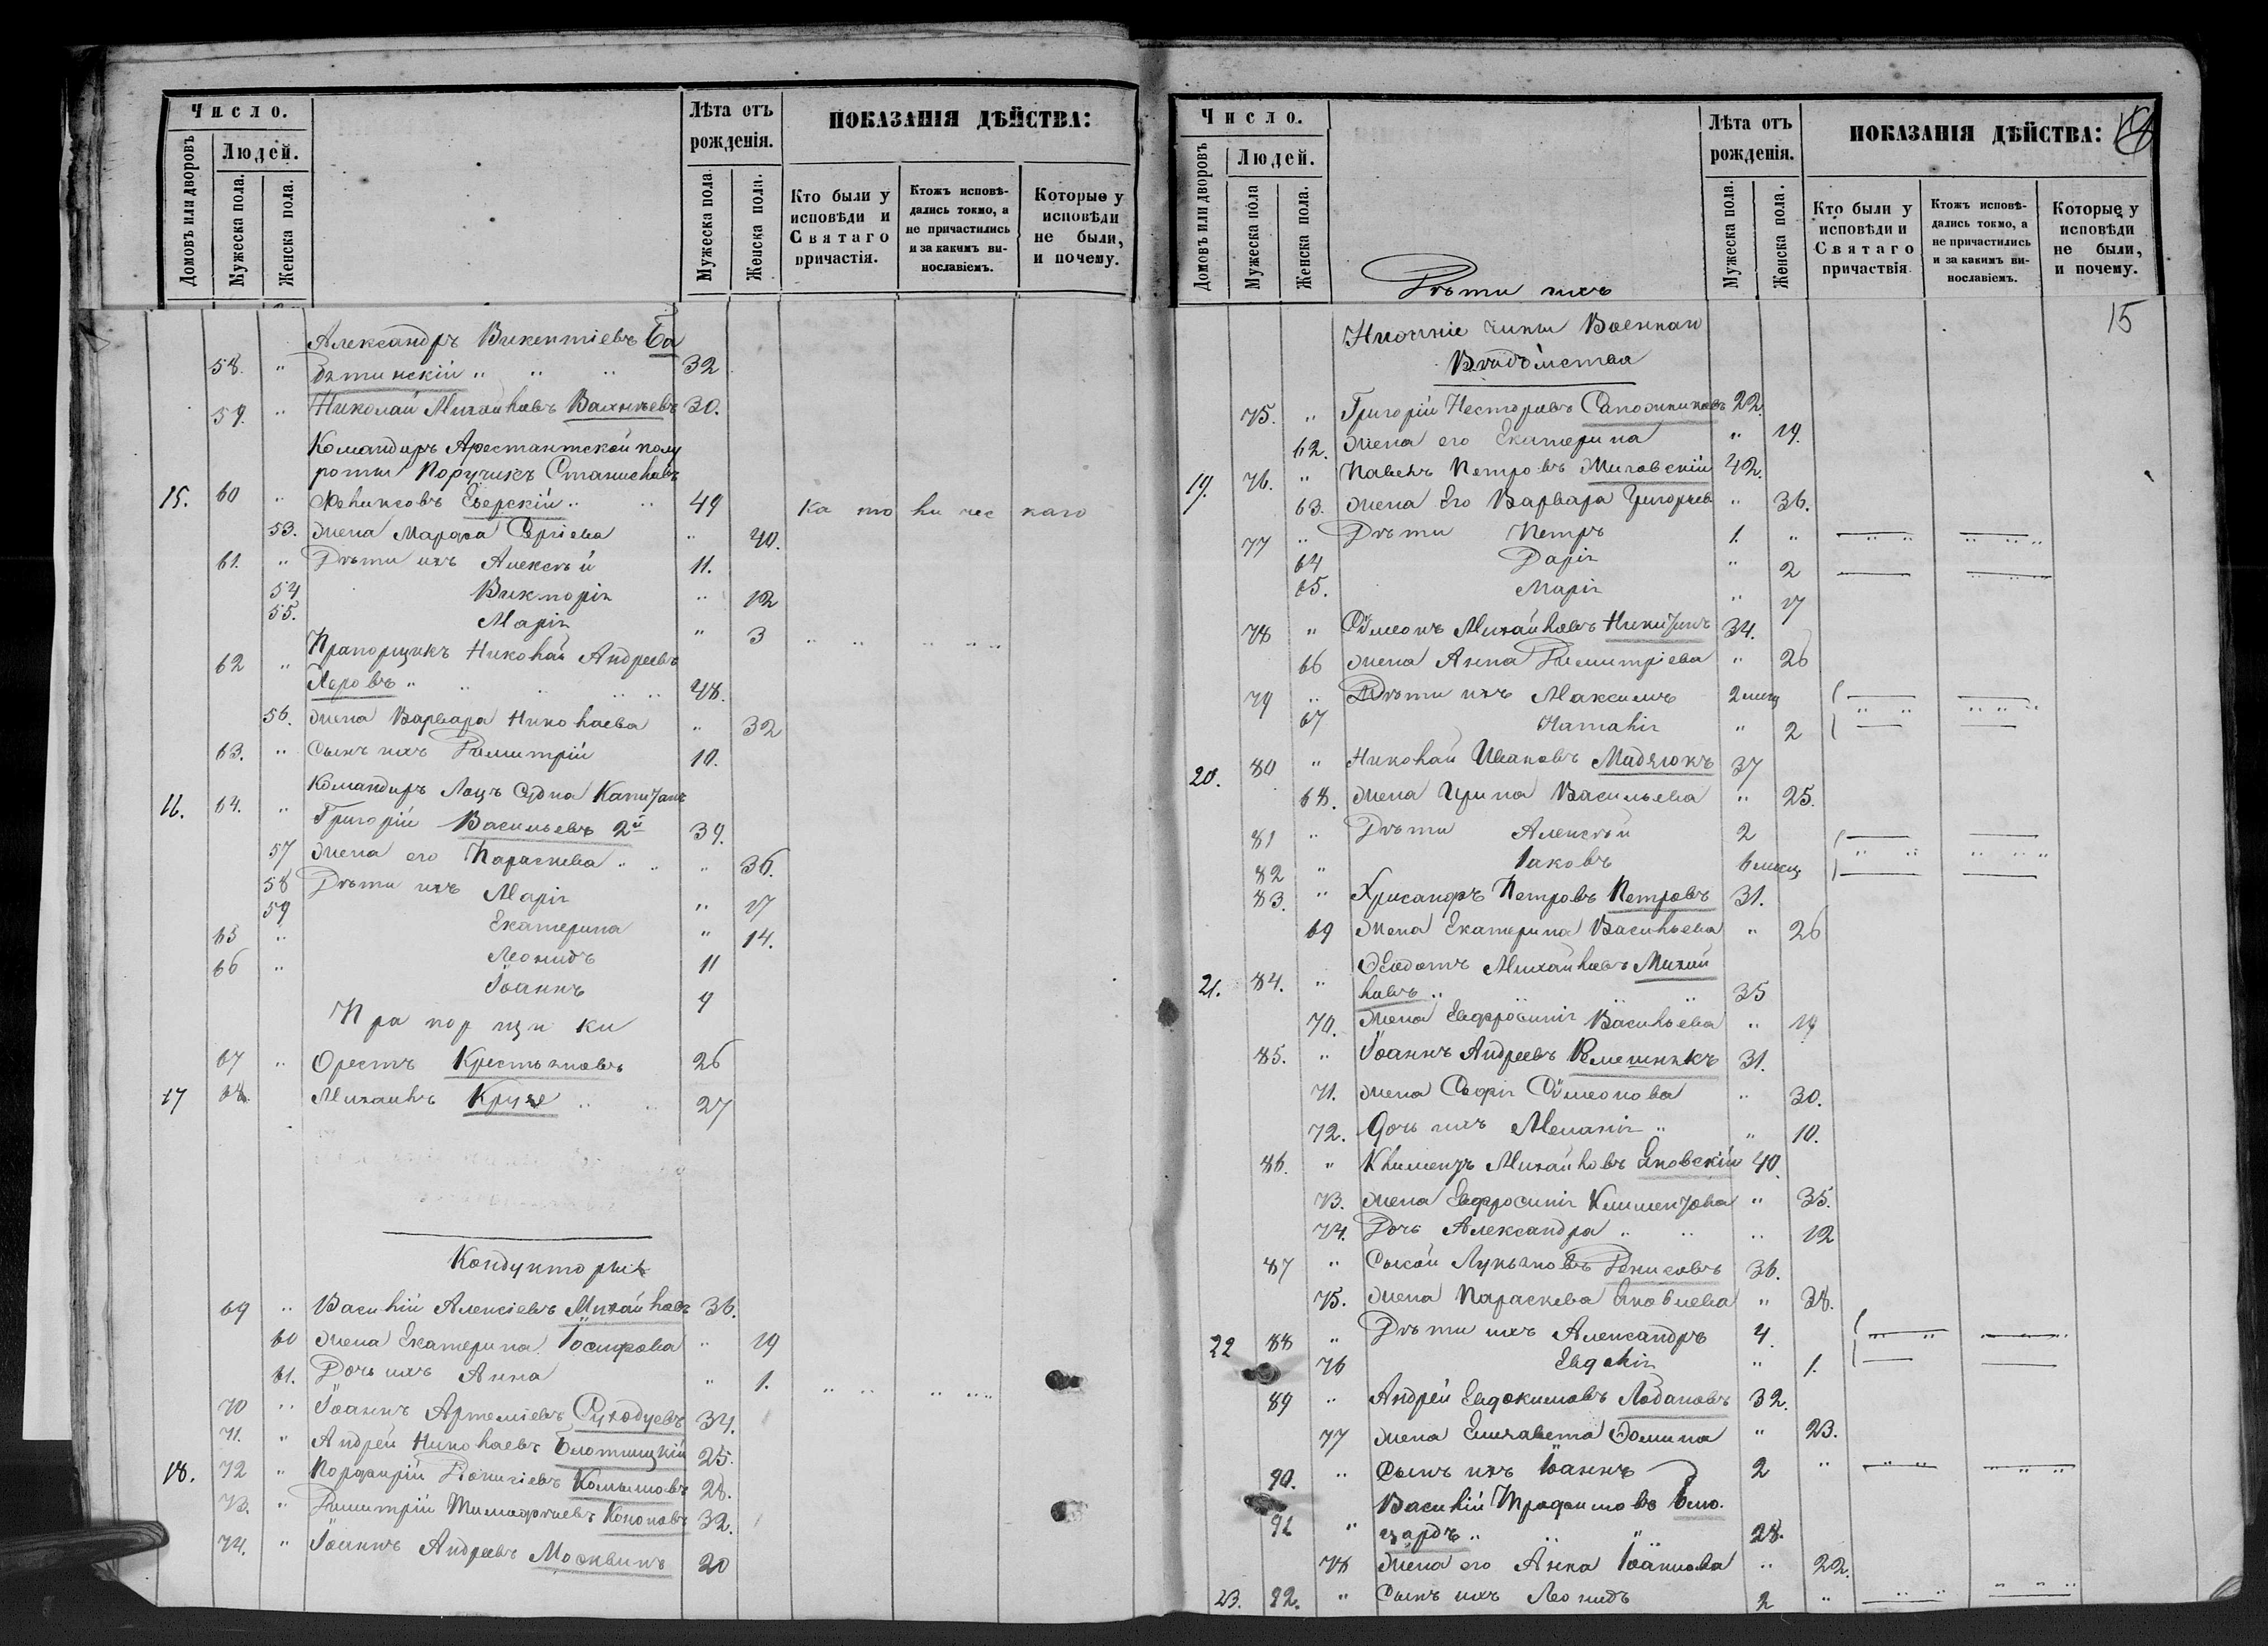 Число.
Людей.
Домовъ или дворовъ
Мужеска пола.
Женска пола.
Лѣта отъ
рожденія.
Мужеска пола
Женска пола.
ПОКАЗАНІЯ ДѢЙСТВА:
Кто были у
исповѣди и
Святаго
причастія.
Ктожъ исповѣ-
дались токмо, а
не причастились
и за какимъ ви-
нославіемъ.
Которые у
исповѣди
не были,
и почему.
Александръ Викентіевъ Ба
58. " 32
59. " Николай Михайловъ 30.
Командиръ Арестантской полу
роты Поручикъ Станиславъ
15. 60 " Феликсовъ Езерскій " " 49 Католическаго
53. Жена Марфа Сергіева " 40.
61. " Дѣти ихъ Алексѣй 11.
54 Викторія " 12
55. Марія " 3 " " " " "
Прапорщикъ Николай Андреевъ
62 " " " " " " 48.
56. Жена Варвара Николаева " 32
63. " Сынъ ихъ Димитрій 10.
Командиръ Лоцъ Судна Капитанъ
16. 64. " Григорій Васильевъ 2й 39.
57 Жена его Параскева " " " 36.
58 Дѣти ихъ Марія " 17
59 Екатерина " 14.
65 " Леонидъ 11
66 " Іоаннъ 9
Прапорщики
67 " Орестъ Крестьяновъ 26
17 68. Михаилъ " " 27
Кондукторы
69 " Василій Алексіевъ Михайловъ 36.
60 Жена Екатерина Іосифова " 19
61. Дочь ихъ Анна " 1. " " " " "
70 " Іоаннъ Артеміевъ Суходуевъ 34.
71. " Андрей Николаевъ Блотницкій 25.
18. 72 " Порфирій Діонисіевъ 28.
73. " Димитрій Тимофѣевъ Кононовъ 32.
74. " Іоаннъ Андреевъ Москвинъ 20
Число.
Людей.
Домовъ или дворовъ
Мужеска пола
Женска пола.
Лѣта отъ
рожденія.
Мужеска пола.
Женска пола.
ПОКАЗАНІЯ ДѢЙСТВА:
Кто были у
исповѣди и
Святаго
причаствія.
Ктожъ исповѣ-
дались токмо, а
не причастились
и за какимъ ви-
нославіемъ.
Которые у
исповѣди
не были,
и почему.
Дѣти ихъ
15
Нижніе чины Военнаго
Вѣдомства
75. " Григорій Несторовъ Сапожниковъ 22.
62. Жена его Екатерина " 19.
19. 76. " Павелъ Петровъ 42.
63. Жена Его Варвара Григорьев " 36.
77 " Дѣти Петръ 1. "
64 Дарія " 2
65. Марія " 17
78 " Сѷмеонъ Михайловъ Никитинъ 34.
66 Жена Анна Димитріева " 26
79 " Дѣти ихъ Максимъ 2 мѣсц
67 Наталія " 2
20. 80 " Николай Ивановъ Мадзюкъ 37
68. Жена Ирина Васильева " 25.
81 " Дѣти Алексѣй 2
82 " Іаковъ 6 мѣсц
83. " Хрисанфъ Петровъ Петровъ 31.
69 Жена Екатерина Васильева " 26
Ѳеодотъ Михайловъ Михай
21. 84. " ловъ " " 35
70. Жена Евфросинія Васильева " 19
85. " Іоаннъ Андреевъ 31.
71. Жена Софія Сѷмеонова " 30.
72. Дочь ихъ Меланія " " 10.
86. " Климентъ Михайловъ Яновскій 40.
73. Жена Евфросинія Климентова " 35.
74. Дочь Александра " " " 12
87 " Лукьяновъ Денисовъ 36.
75. Жена Параскева Яковлева " 38.
22 88 " Дѣти ихъ Александръ 4.
76 Евдокія " 1.
89 " Андрей Евдокимовъ Лобановъ 32.
77 Жена Елисавета Ѳомина " 23.
90. " Сынъ ихъ Іоаннъ 2 "
Василій Трофимовъ
91 " " " " 28.
78 Жена его Анна Іоаннова " 22.
23. 92. " Сынъ ихъ Леонидъ 2 " " " " " "